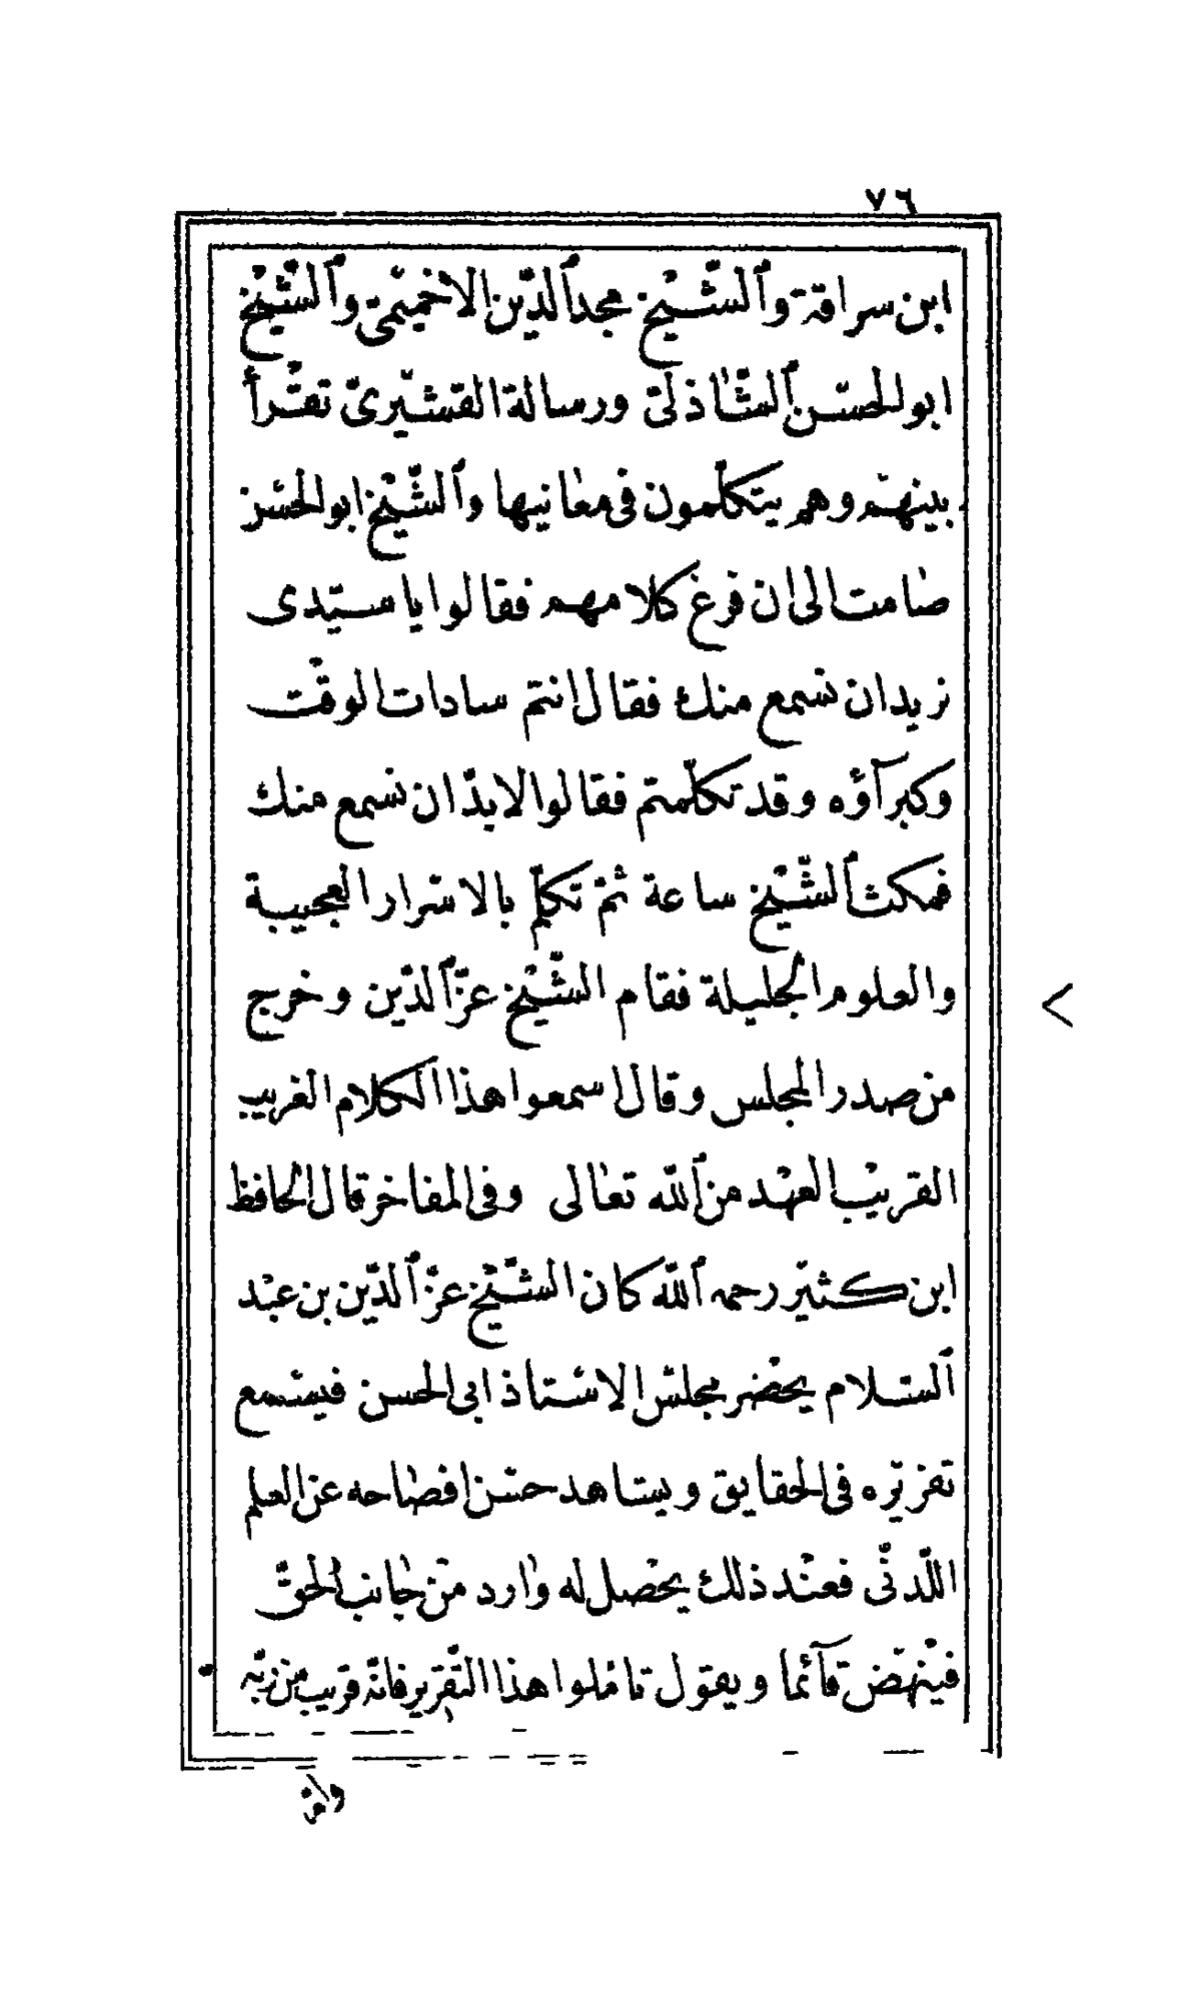 ٧٦
ابن سراقة وٱلشّيخ مجدٱلدّين الاخميمىّ وٱلشّيخ
ابوالحسن ٱلشّاذلىّ ورسالة القشيرىّ تقرأ
بينهم وهم يتكلّمون فى معانيها وٱلشّيخ ابوالحسن
صامت الى ان فرغ كلامهم فقالوا يا سيّدى
نريدان نسمع منك فقال انتم سادات الوقت
وكبرآؤه وقد تكلّمتم فقالوا لا بدّ ان نسمع منك
فمكث ٱلشّيخ ساعة ثمّ تكلّم بالاسرار العجيبة
والعلوم الجليلة فقام الشّيخ عزّٱلدّين وخرج
من صدر المجلس وقال اسمعوا هذا الكلام الغريب
القريب العهد من ٱللّه تعالى وفى المفاخر قال الحافظ
ابن كثير رحمه ٱللّه كان الشّيخ عزّ ٱلدّين بن عبد
ٱلسّلام يحضر مجلس الاستاذ ابى الحسن فيسمع
تقريره فى الحقايق ويشاهد حسن افصاحه عن العلم
اللّدنّى فعند ذلك يحصل له وارد من جانب الحقّ
فينهض قآئما ويقول تاملوا هذا التّقرير فانّه قريب من ربّه